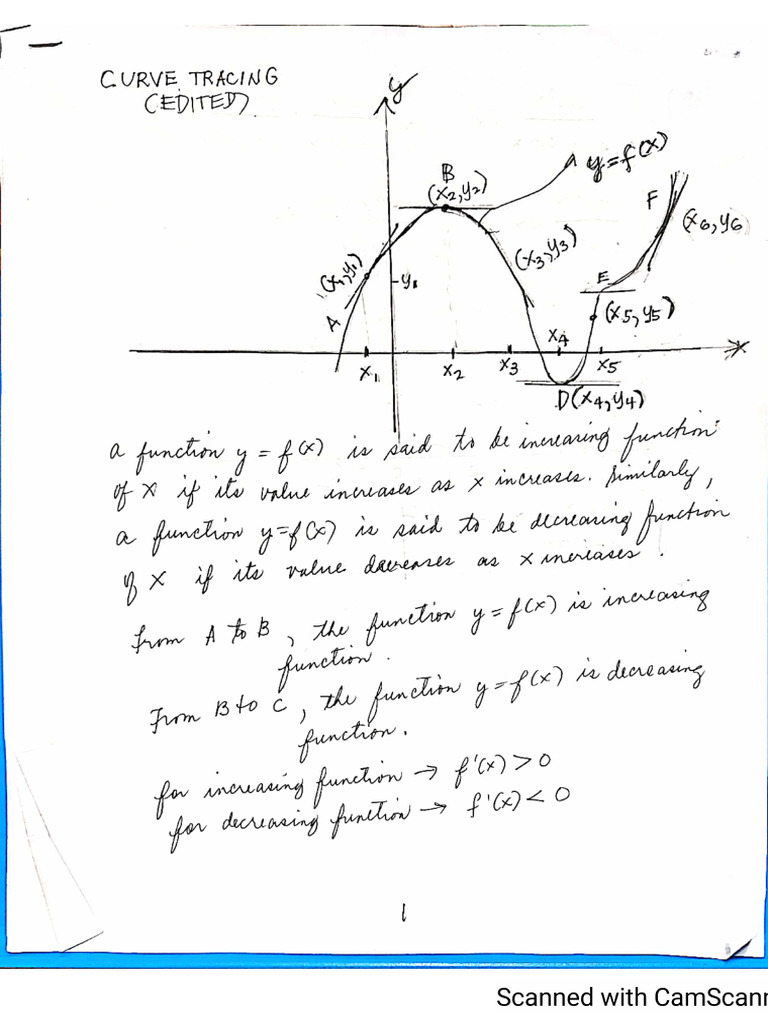 CURVE TRACING
(EDITED)
y
y=f(x)
B
(x2,y2)
F
(x6,y6)
(x3,y3)
(x1,y1)
y1
E
A
(x5,y5)
x4
x
x1
x2
x3
x5
D(x4,y4)
a function y = f(x) is said to be increasing function
of x if its value increases as x increases. Similarly,
a function y=f(x) is said to be decreasing function
of x if its value decreases as x increases.
From A to B, the function y = f(x) is increasing
function.
From B to C, the function y = f(x) is decreasing
function.
for increasing function → f'(x) > 0
for decreasing function → f'(x) < 0
1
Scanned with CamScann